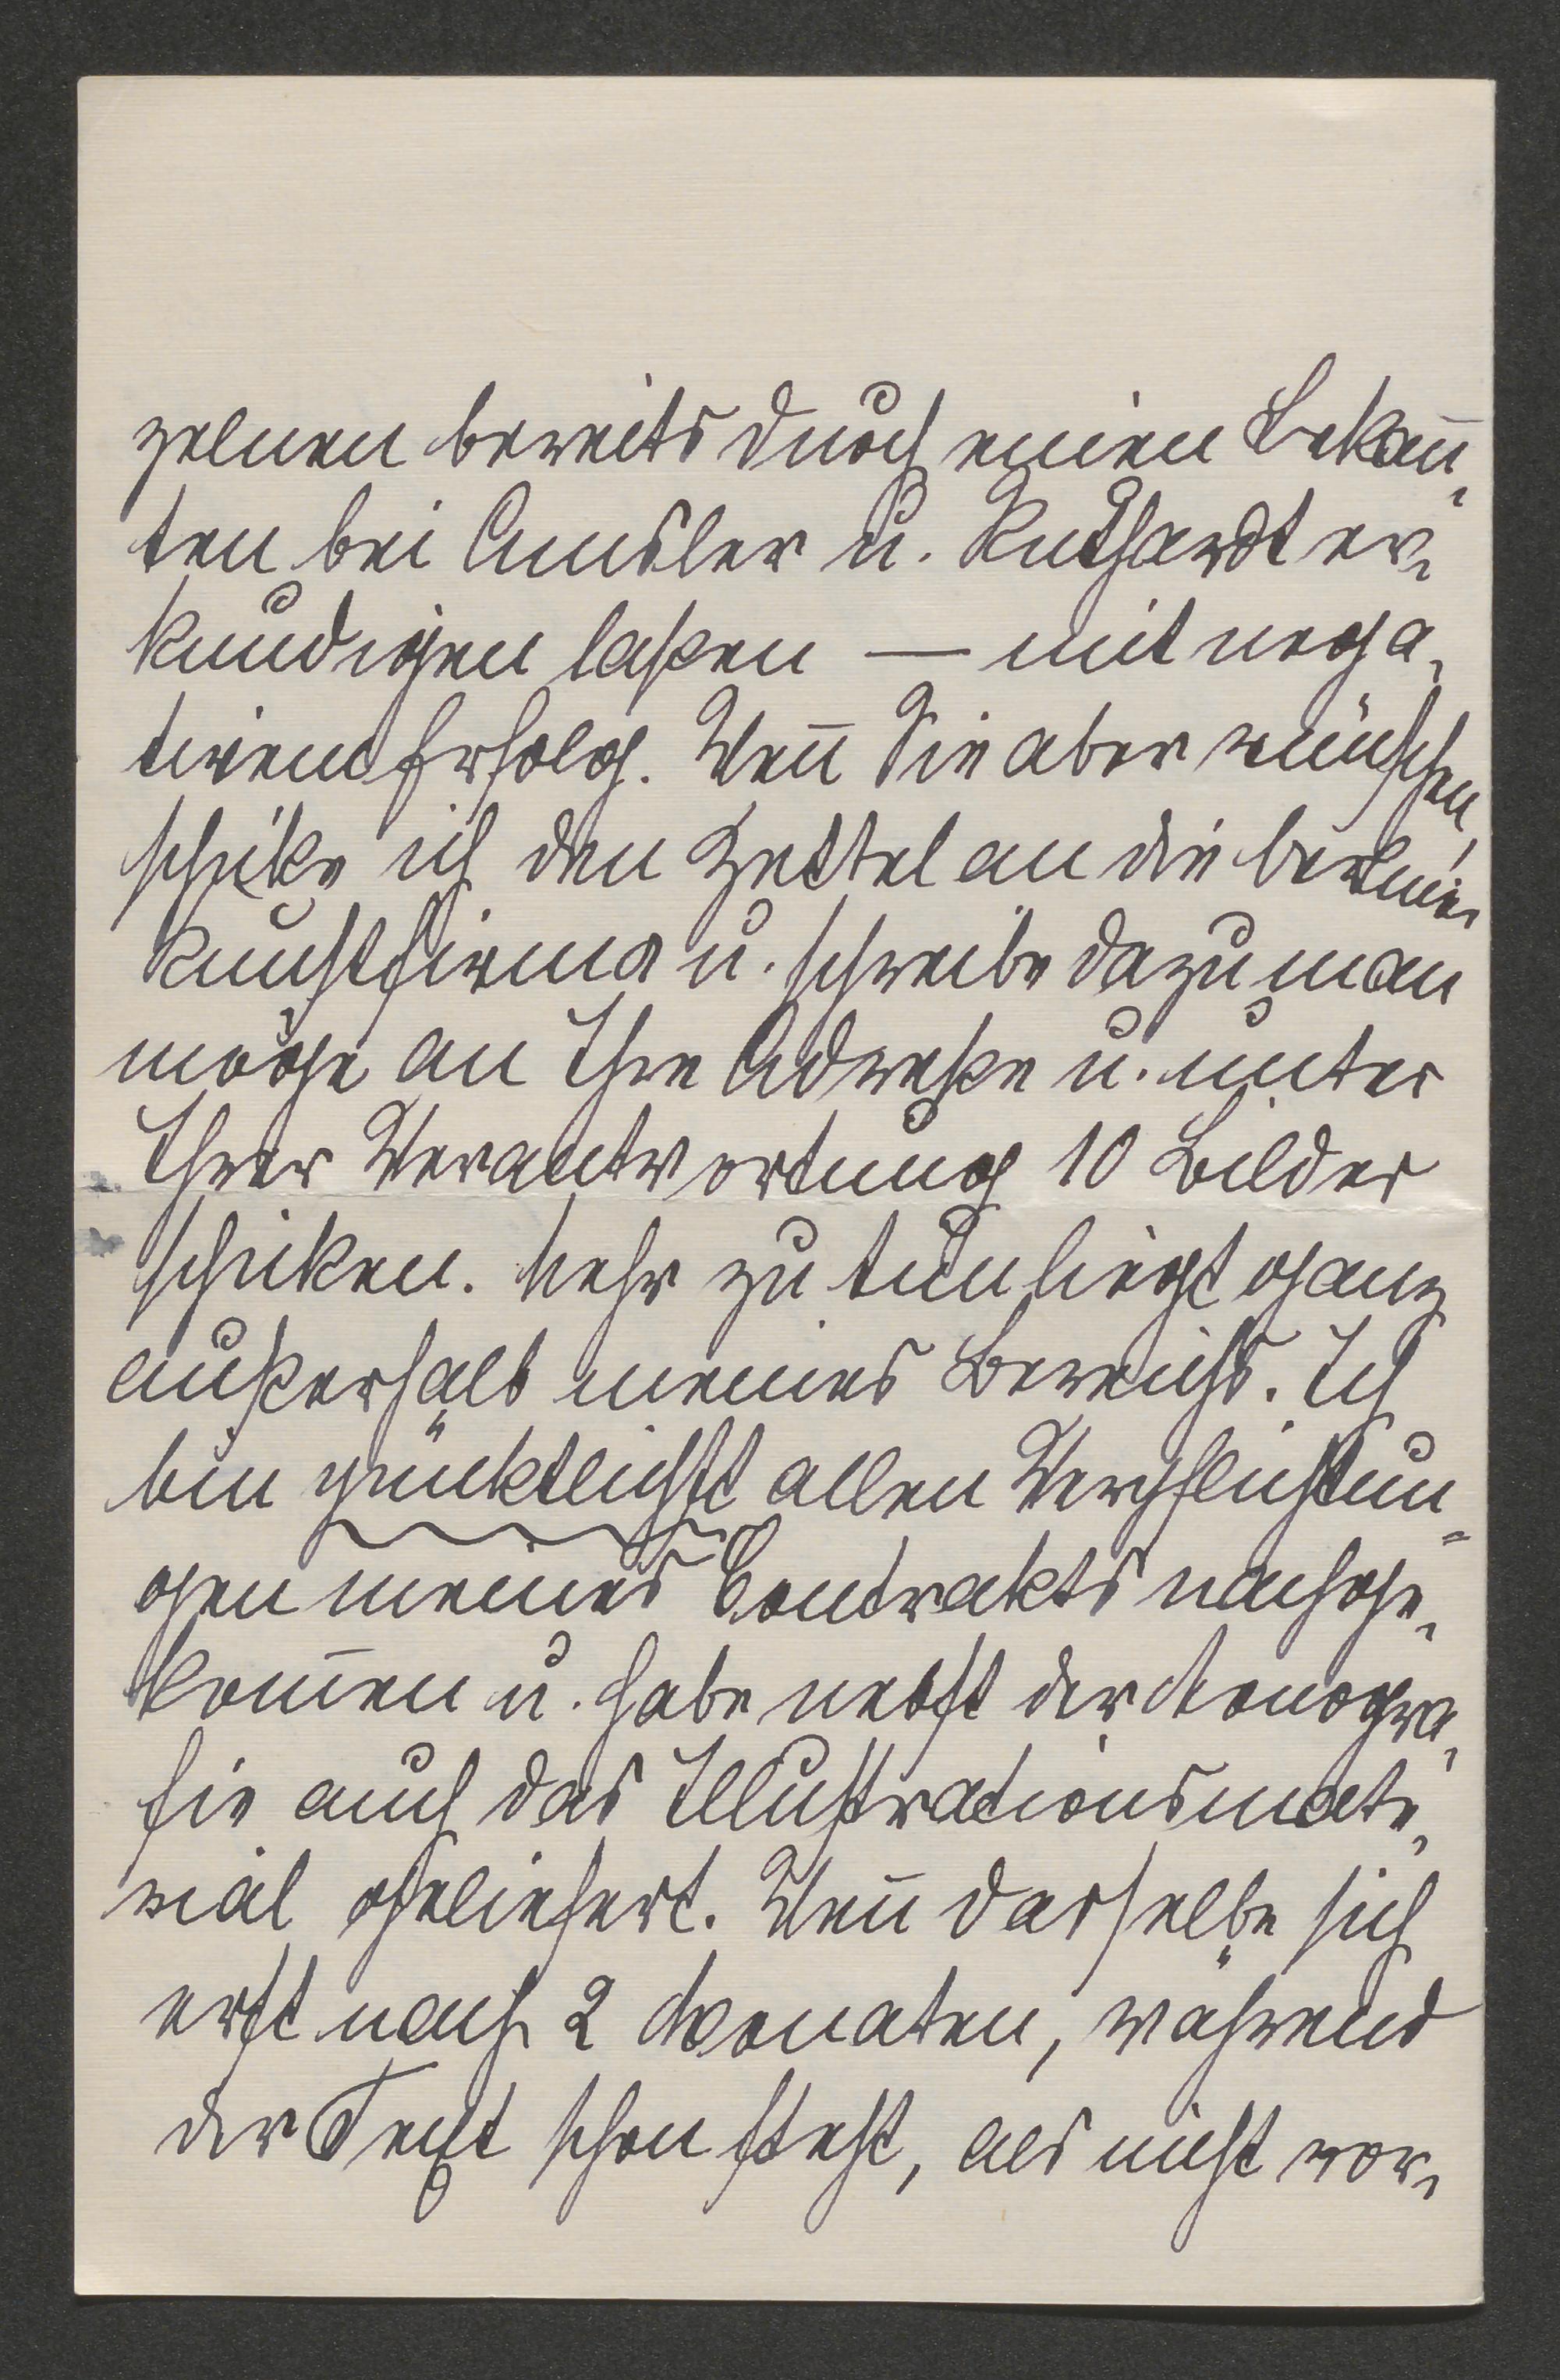 zelnen bereits durch einen Bekan̄-
ten bei Amsler u. Ruthardt er-
kundigen laßen — mit nega-
tivem Erfolg. Wen̄ Sie aber wünschen,
schike ich den Zettel an die berliner
Kunstfirma u. schreibe dazu man
möge an Ihre Adreße u. unter
Ihrer Verantwortung 10 Bilder
schiken. Mehr zu tun liegt ganz
außerhalb meines Bereichs. Ich
bin pünktlichst allen Verpflichtun-
gen meines Contrakts nachge-
kom̄en u. habe nebst der Monogra-
fie auch das Illustrationsmate-
rial geliefert. Wen̄ dasselbe sich
erst nach 2 Monaten, während
der Text schon steht, als nicht vor-